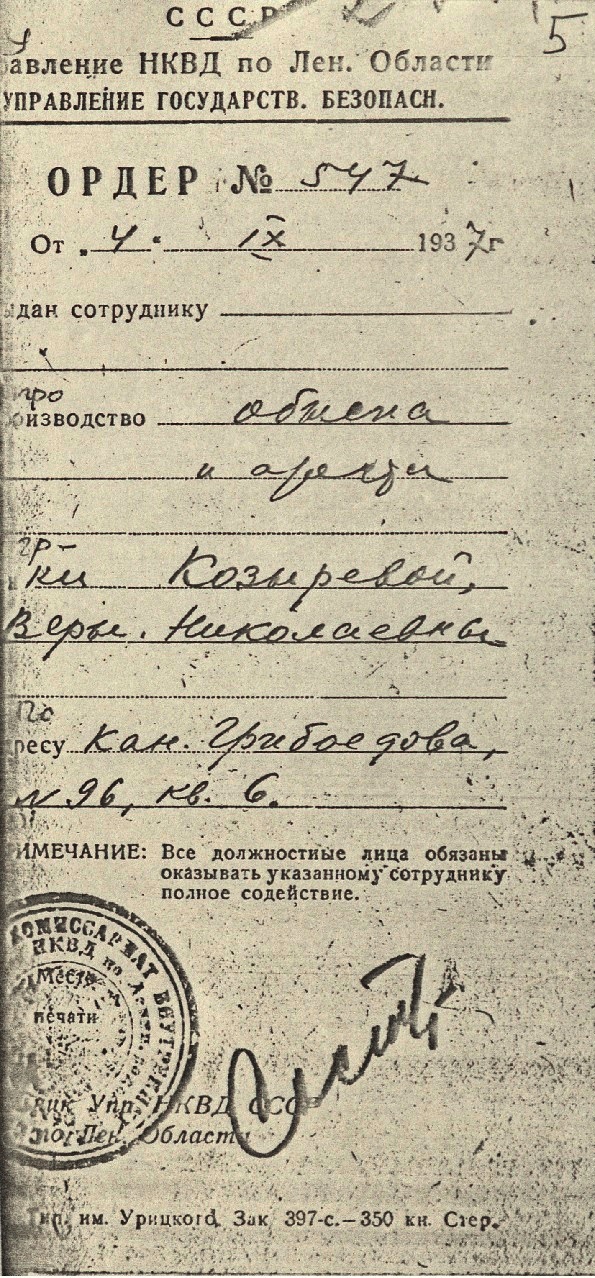 СССР
5
авление НКВД по Лен. Области
УПРАВЛЕНИЕ ГОСУДАРСТВ. БЕЗОПАСН.
ОРДЕР № 547
От „4“ IX 1937г
дан сотруднику
про
оизводство обыска
и ареста
гр-
ки Козыревой,
Веры Николаевны
По
ресу Кан. Грибоедова,
№ 96, кв. 6.
ИМЕЧАНИЕ: Все должностные лица обязаны
оказывать указанному сотруднику
полное содействие.
КОМИССАРИАТ ВНУТРЕН
НКВД по
Место
печати
ник Упр. НКВД СССР
по Лен. Области
Тип. им. Урицкого. Зак 397-с.—350 кн. Стер.